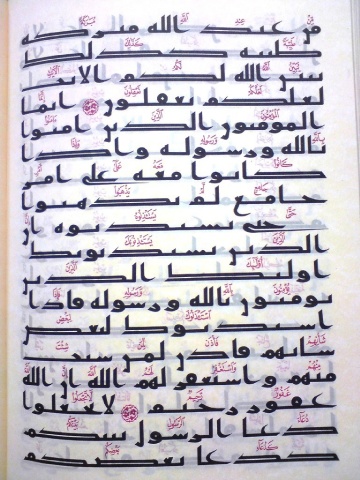 من عند الله مبركة
طيبة كذلك
يبين الله لكم الايت
لعلكم تعقلون انما
المومنون الذين امنوا
بالله ورسوله واذا
كانوا معه على امر
جامع لم يذهبوا
حتى يستذنوه ان
الذين يستذنونك
اوليك الذين
يومنون بالله ورسوله فاذا
استذنوك لبعض
شانهم فاذن لمن شيت
منهم واستغفر لهم الله ان الله
غفور رحيم لا تجعلوا
دعا الرسول بينكم
كدعا بعضكم